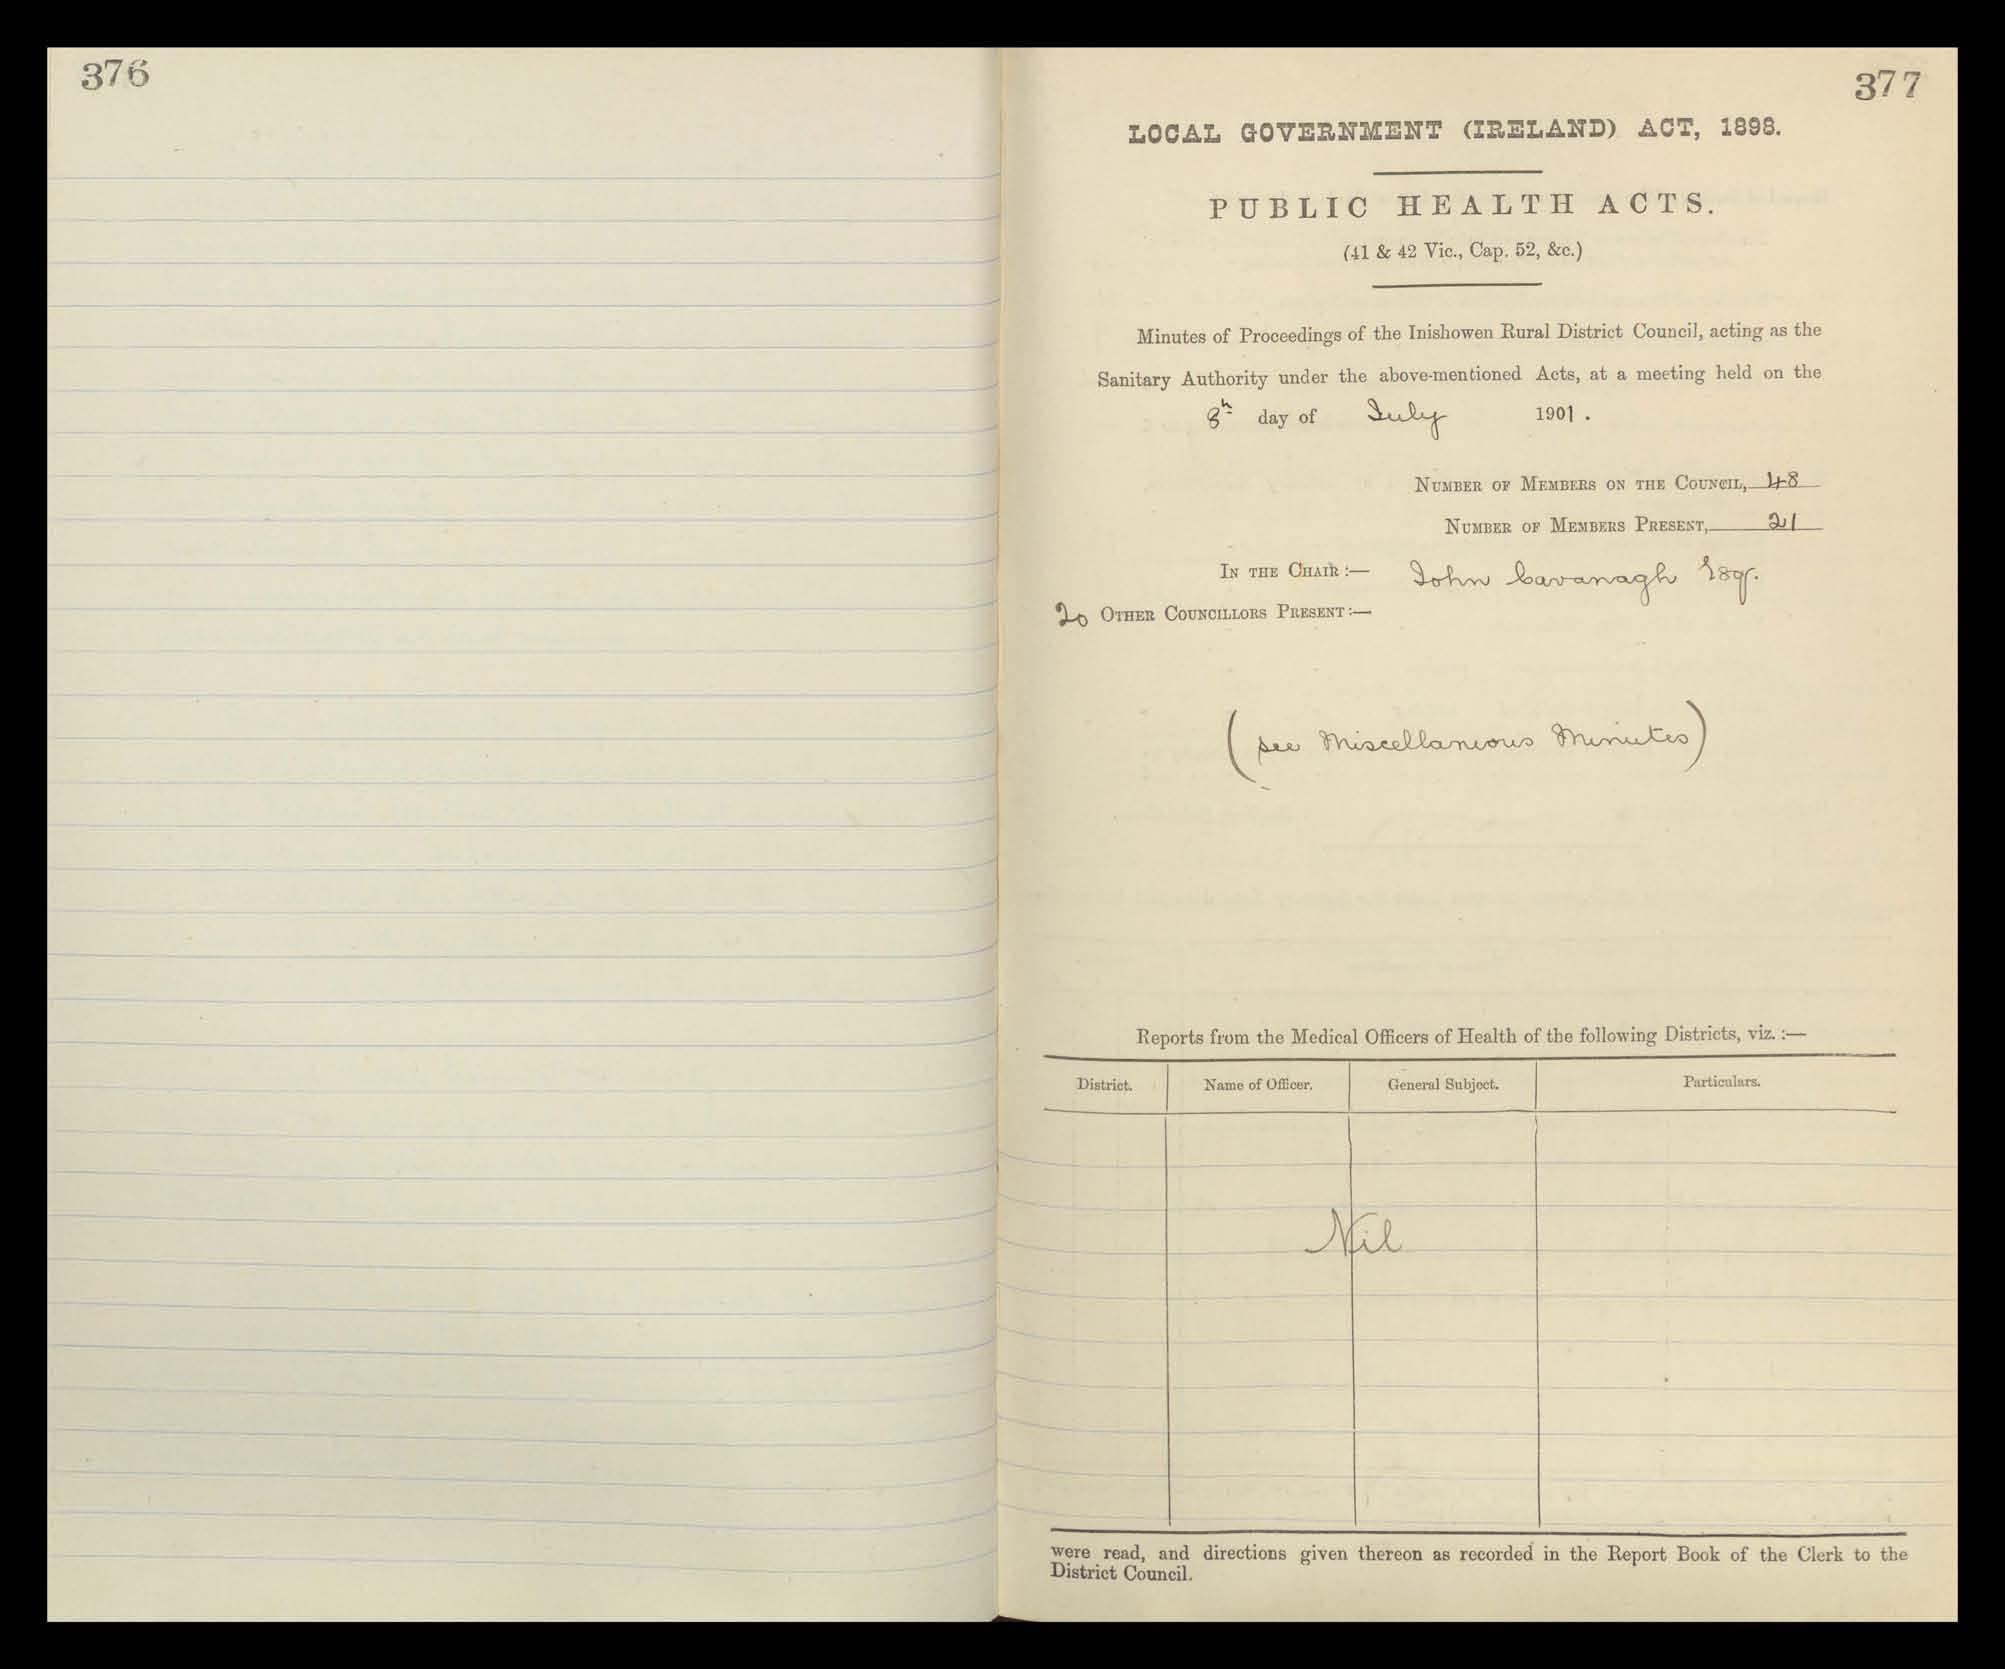 376
377
LOCAL GOVERNMENT (IRELAND) ACT, 1898.
PUBLIC HEALTH ACTS.
(41 & 42 Vic., Cap. 52, &c.)
Minutes of Proceedings of the Inishowen Rural District Council, acting as the
Sanitary Authority under the above-mentioned Acts, at a meeting held on the
8th day of July 1901.
NUMBER OF MEMBERS ON THE COUNCIL, 48
NUMBER OF MEMBERS PRESENT, 21
IN THE CHAIR :— John Cavanagh Esqr.
20 OTHER COUNCILLORS PRESENT :—
(see Miscellaneous Minutes)
Reports from the Medical Officers of Health of the following Districts, viz. :—
District. Name of Officer. General Subject. Particulars.
Nil
were read, and directions given thereon as recorded in the Report Book of the Clerk to the
District Council.